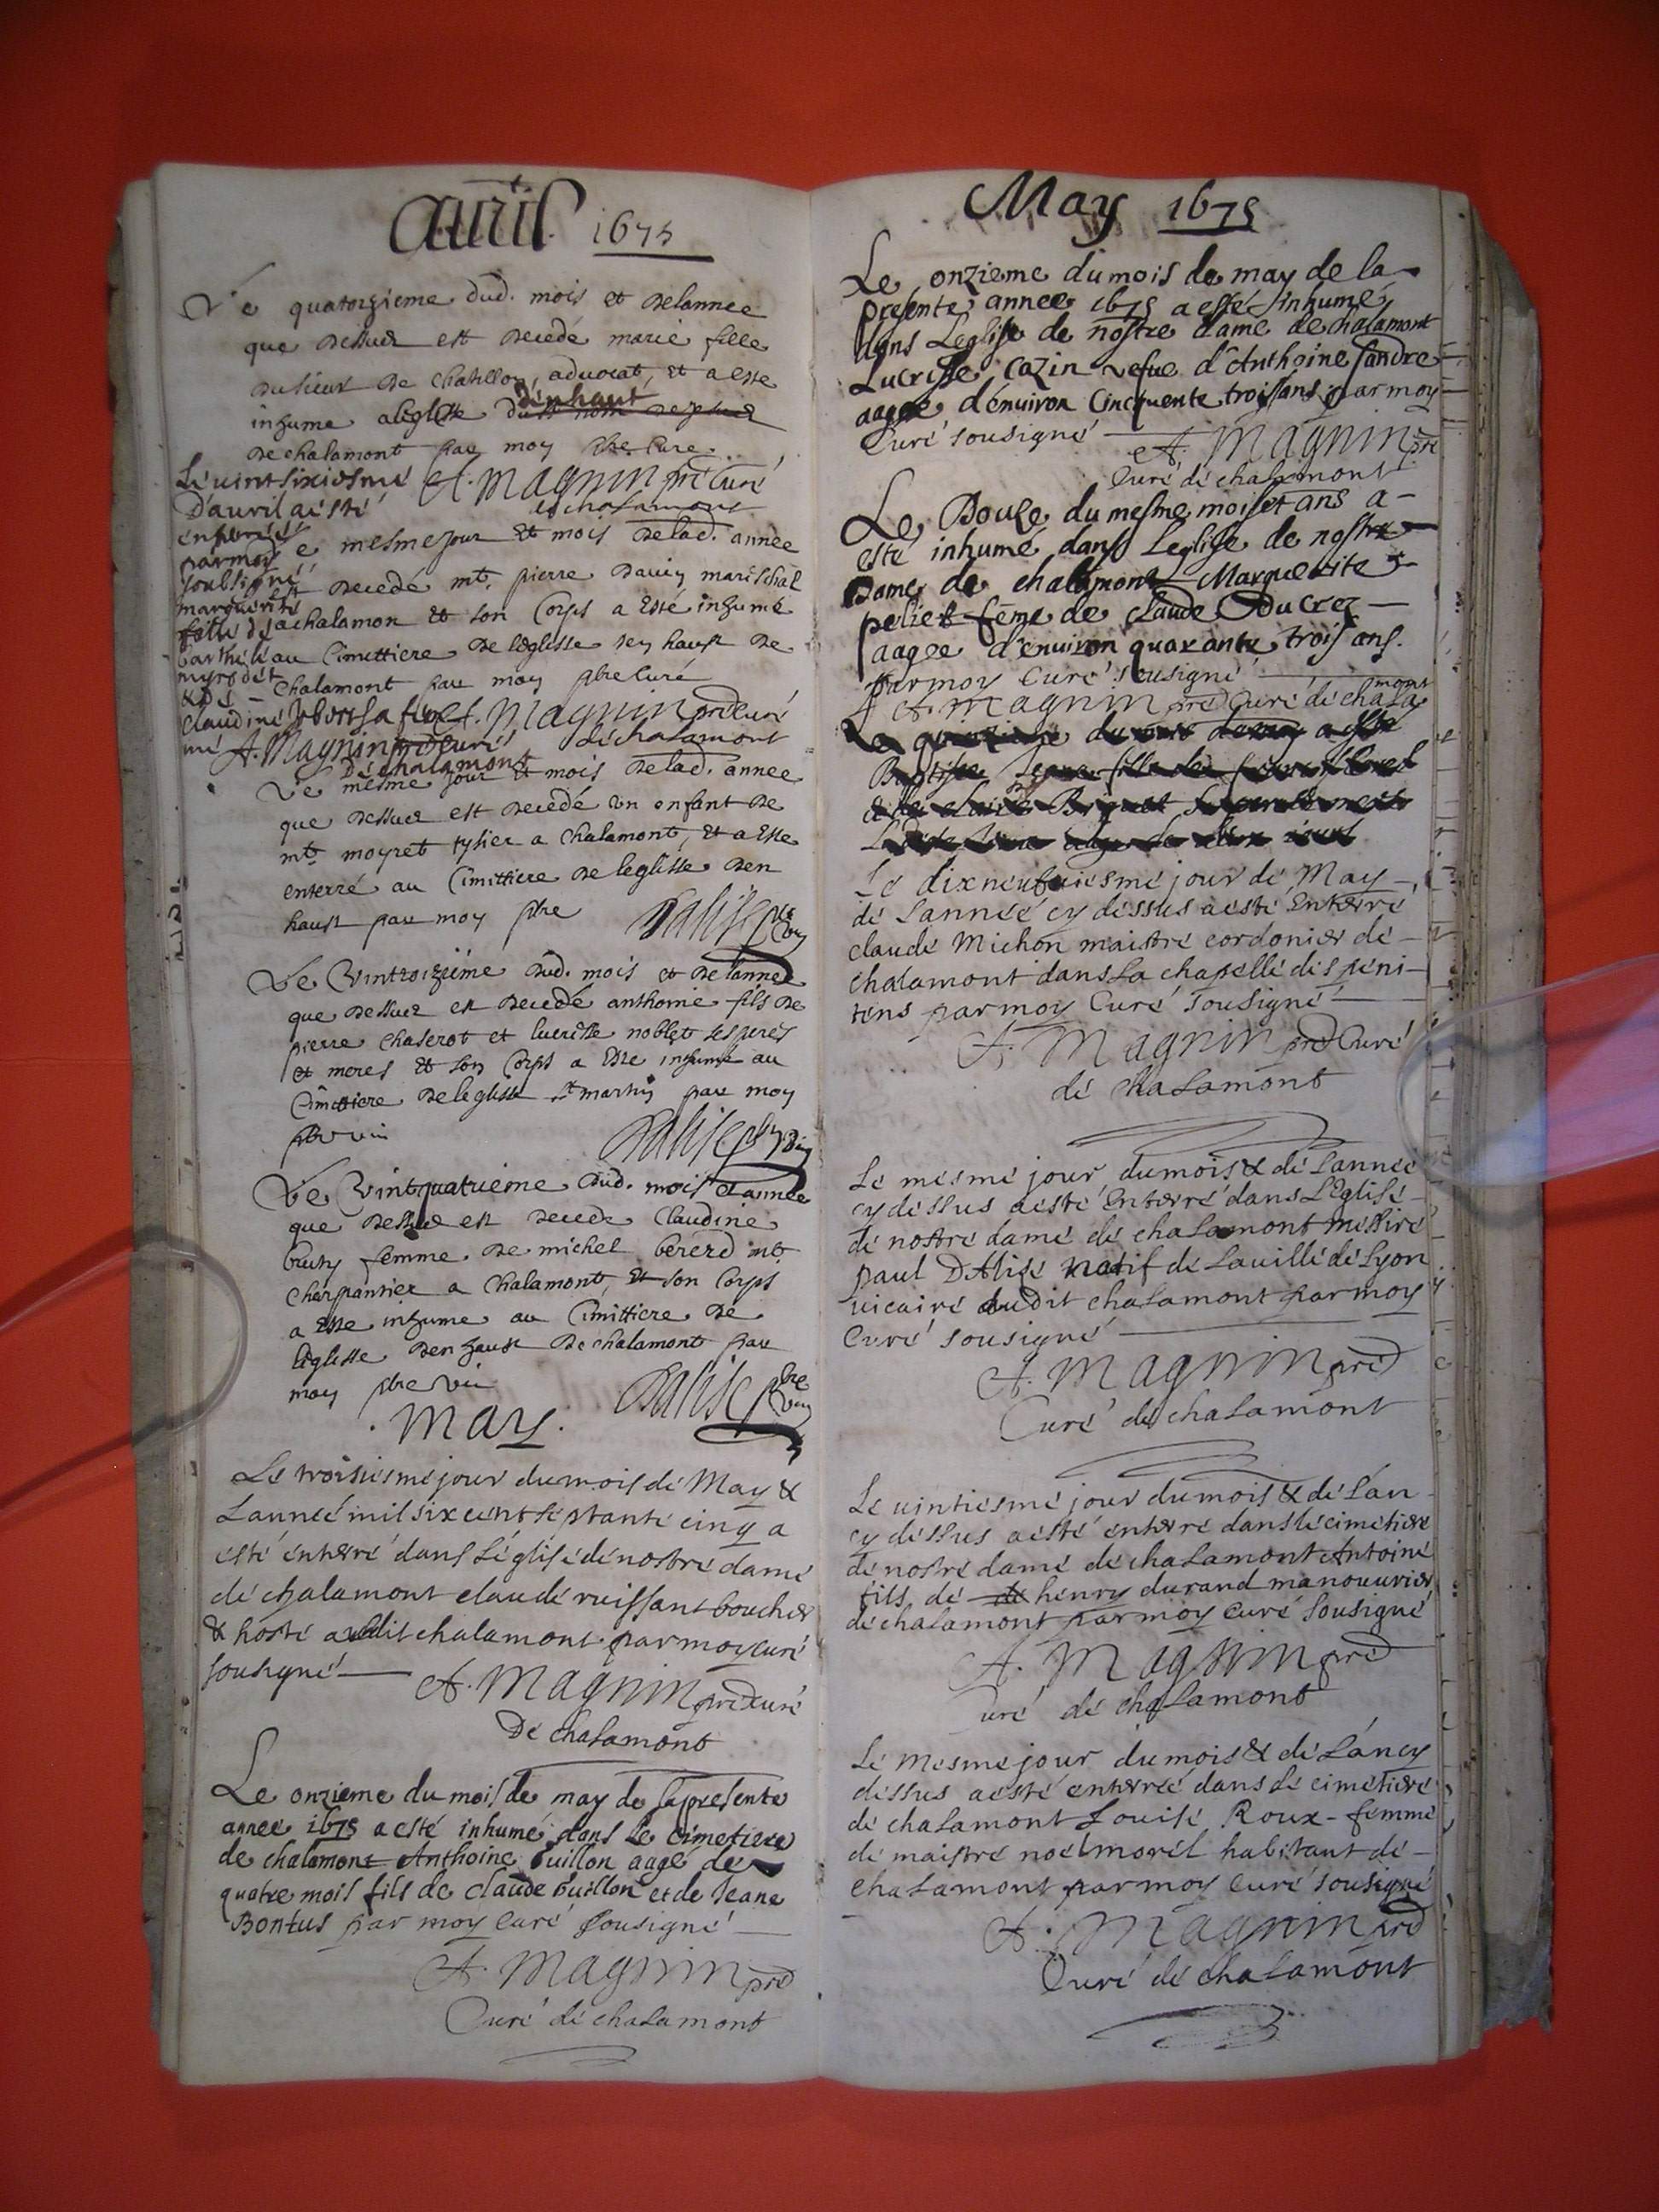 auril 1675
Le quatorzieme dud. mois et delannee
que dessus est decedé marie fille
dusieur de chatillon, aduocat, et a esté
inhumé a leglise denhaut
de chalamont par moy pbre Curé.
A. Magnin pre Curé
de chalamont
Le uintsixiesmé
D'auril aésté
enterréé
parmoy
soubsigné
marguerité
fillé dé
claudiné
A. Magnin pre curé
dé chalamont
Le mesmejour et mois delad. année
decedé mt. pierre marischal
achalamon et son Corps a Esté inhumé
au Cimettiere de leglisse den hault de
Chalamont par moy pbre Curé
A. Magnin pre curé
de chalamont
Le mesme jour et mois delad. annee
que dessus est decedé un enfant de
mt. moyret tysier a Chalamont, Et a Esté
enterré au Cimittiere de leglisse den
hault par moy pbre Dalise pbre vic
Le Vintroizième dud. mois et de lannee
que dessus est decedé anthoine fils de
pierre Chaserot et lucresse noblet ses peres
et meres et son Corps a Esté inhumé au
Cimittiere de leglisse st martin par moy
pbre vic Dalise pbre vic
Le Vintquatrieme dud. mois et année
que dessus est decede Claudine
femme de michel bererd mt
Charpantier a Chalamont, Et son Corps
a Esté inhumé au Cimittiere de
leglisse den hault de chalamont par
moy pbre vic Dalise pbre vic
. May.
Le troisiesmé jour dumois dé May &
L'annéé mil six cent septanté cinq a
esté énterré dans L'églisé dé nostré damé
dé chalamont claudé ruissant boucher
& hosté audit chalamont parmoy curé
sousigné A. Magnin pre curé
Dé chalamont
Le onzieme du mois de may de la presente
année 1675 a esté inhumé dans Le Cimetiere
de chalamont Anthoine Guillon aagé de
quatre mois fils de Claude Guillon et de Jeane
Bontus par moy Curé sousigné
A. Magnin pre
Curé dé chalamont
May 1675
Le onzieme du mois de may de la
presente annee 1675 a esté inhumé
dans L'eglise de nostre dame de chalamont
Lucresse Cazin vefue d'Anthoine Sandre
aagée d'énuiron Cincquente trois ans parmoy
Curé sousigné A. Magnin pre
Curé dé chalamont
Le Douze du mesme mois et ans a
esté inhumé dans L'eglise de nostre
Dame de chalamont Marguerite
pelier féme de Claude Ducrez
aagée d'enuiron quarante trois ans.
parmoy Curé sousigné
A. Magnin pre Curé dé chalamont
Le dixneufuiesmé jour dé May
dé L'annéé cy déssus aésté Enterré
claudé Michon maistré cordonier dé
chalamont dans la chapellé dés péni-
tens parmoy Curé sousigné
A. Magnin pre Curé
dé chalamont
Lé mésmé jour dumois & dé L'année
cy déssus aésté Enterré dans L'Eglisé
dé nostré damé dé chalamont Messiré
paul D'Alisé natif dé Lauillé dé Lyon
uicairé dudit chalamont parmoy
Curé sousigné
A. Magnin pre
Curé dé chalamont
Lé uintiesmé jour dumois & dé L'an
cy déssus aésté énterré dans lé cimetiere
dé nostré damé dé chalamont Antoiné
fils dé henry durand manouurier
dé chalamont parmoy Curé sousigné
A. Magnin pre
Curé dé chalamont
Lé mésmé jour dumois & dé L'an cy
déssus aésté enterréé dans lé cimetieré
dé chalamont Louisé Roux femmé
dé maistré noél morél habitant dé
chalamont parmoy Curé sousigné
A. Magnin pre
Curé dé chalamont